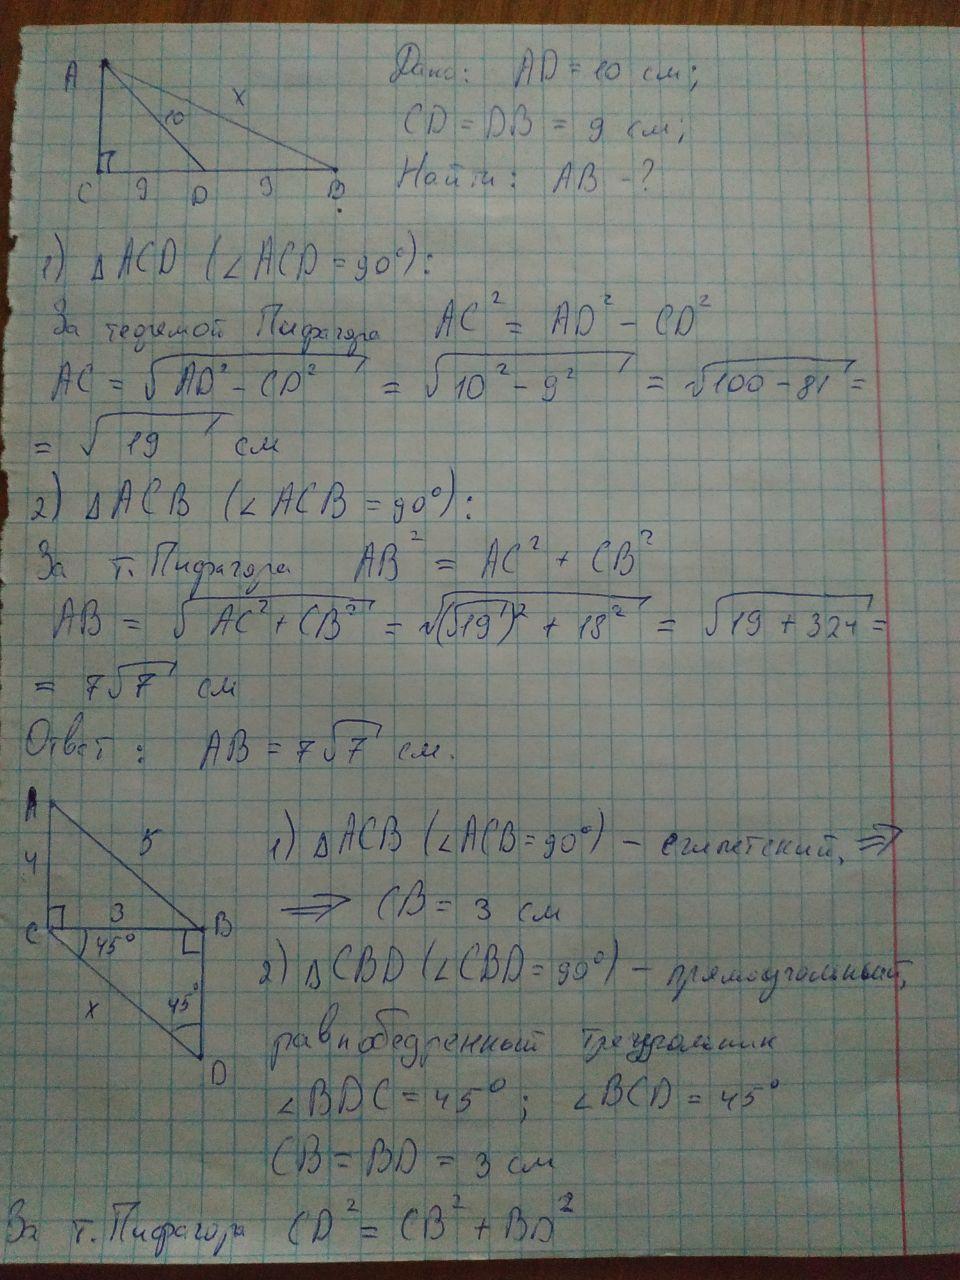 A
x
10
C 9 D 9 B
Дано: AD = 10 см;
CD = DB = 9 см;
Найти: AB - ?
1) △ACD (∠ACD = 90°):
За теоремой Пифагора AC² = AD² - CD²
AC = √(AD² - CD²) = √(10² - 9²) = √(100 - 81) =
= √19 см
2) △ACB (∠ACB = 90°):
За т. Пифагора AB² = AC² + CB²
AB = √(AC² + CB²) = √((√19)² + 18²) = √(19 + 324) =
= 7√7 см
Ответ: AB = 7√7 см.
A
4
5
3
C
B
45°
x
45°
D
1) △ACB (∠ACB = 90°) - египетский, ⇒
⇒ CB = 3 см
2) △CBD (∠CBD = 90°) - прямоугольный,
равнобедренный треугольник
∠BDC = 45°; ∠BCD = 45°
CB = BD = 3 см
За т. Пифагора CD² = CB² + BD²